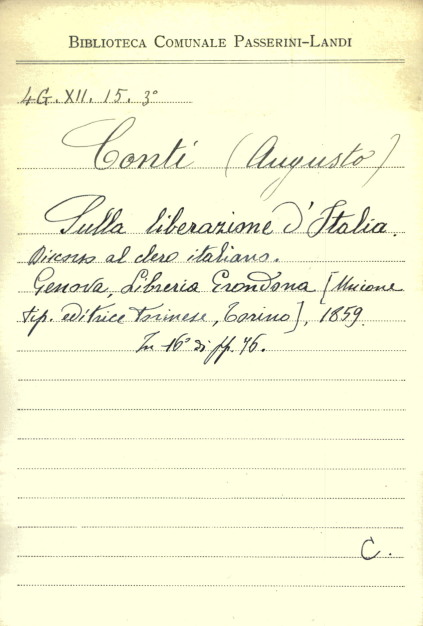 BIBLIOTECA COMUNALE PASSERINI-LANDI
4G. XII. 15. 3°
Conti (Augusto)
Sulla liberazione d'Italia.
Discorso al clero italiano.
Genova, Libreria Grondona [Unione
tip. editrice torinese, Torino], 1859
In 16° di pp. 76.
C.